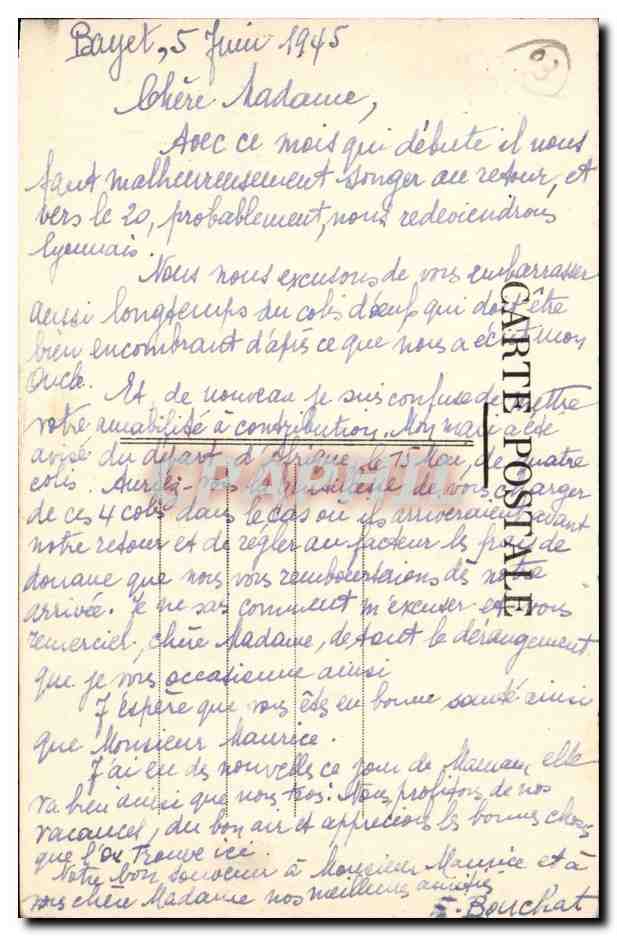 Bayet, 5 Juin 1945
Chère Madame,
Avec ce mois qui débute il nous
faut malheureusement songer au retour, et
vers le 20, probablement, nous redeviendrons
lyonnais.
Nous nous excusons de vous embarrasser
aussi longtemps du colis d'œufs qui doit être
bien encombrant d'après ce que nous a écrit mon
Oncle.
Et, de nouveau je suis confuse de mettre
votre amabilité à contribution. Mon mari a été
avisé du départ d'Afrique, le 15 Mai, de quatre
colis. Auriez-vous la gentillesse de vous charger
de ces 4 colis dans le cas où ils arriveraient avant
notre retour et de régler au facteur les frais de
douane que nous vous rembourserions dès notre
arrivée. Je ne sais comment m'excuser et vous
remercier, chère Madame, de tout le dérangement
que je vous occasionne ainsi
J'espère que vous êtes en bonne santé ainsi
que Monsieur Maurice.
J'ai eu des nouvelles ce jour de Maman, elle
va bien ainsi que nous trois. Nous profitons de nos
vacances, du bon air et apprécions les bonnes choses
que l'on trouve ici.
Notre bon souvenir à Monsieur Maurice et à
vous chère Madame nos meilleures amitiés
E. Bouchat
CARTE POSTALE